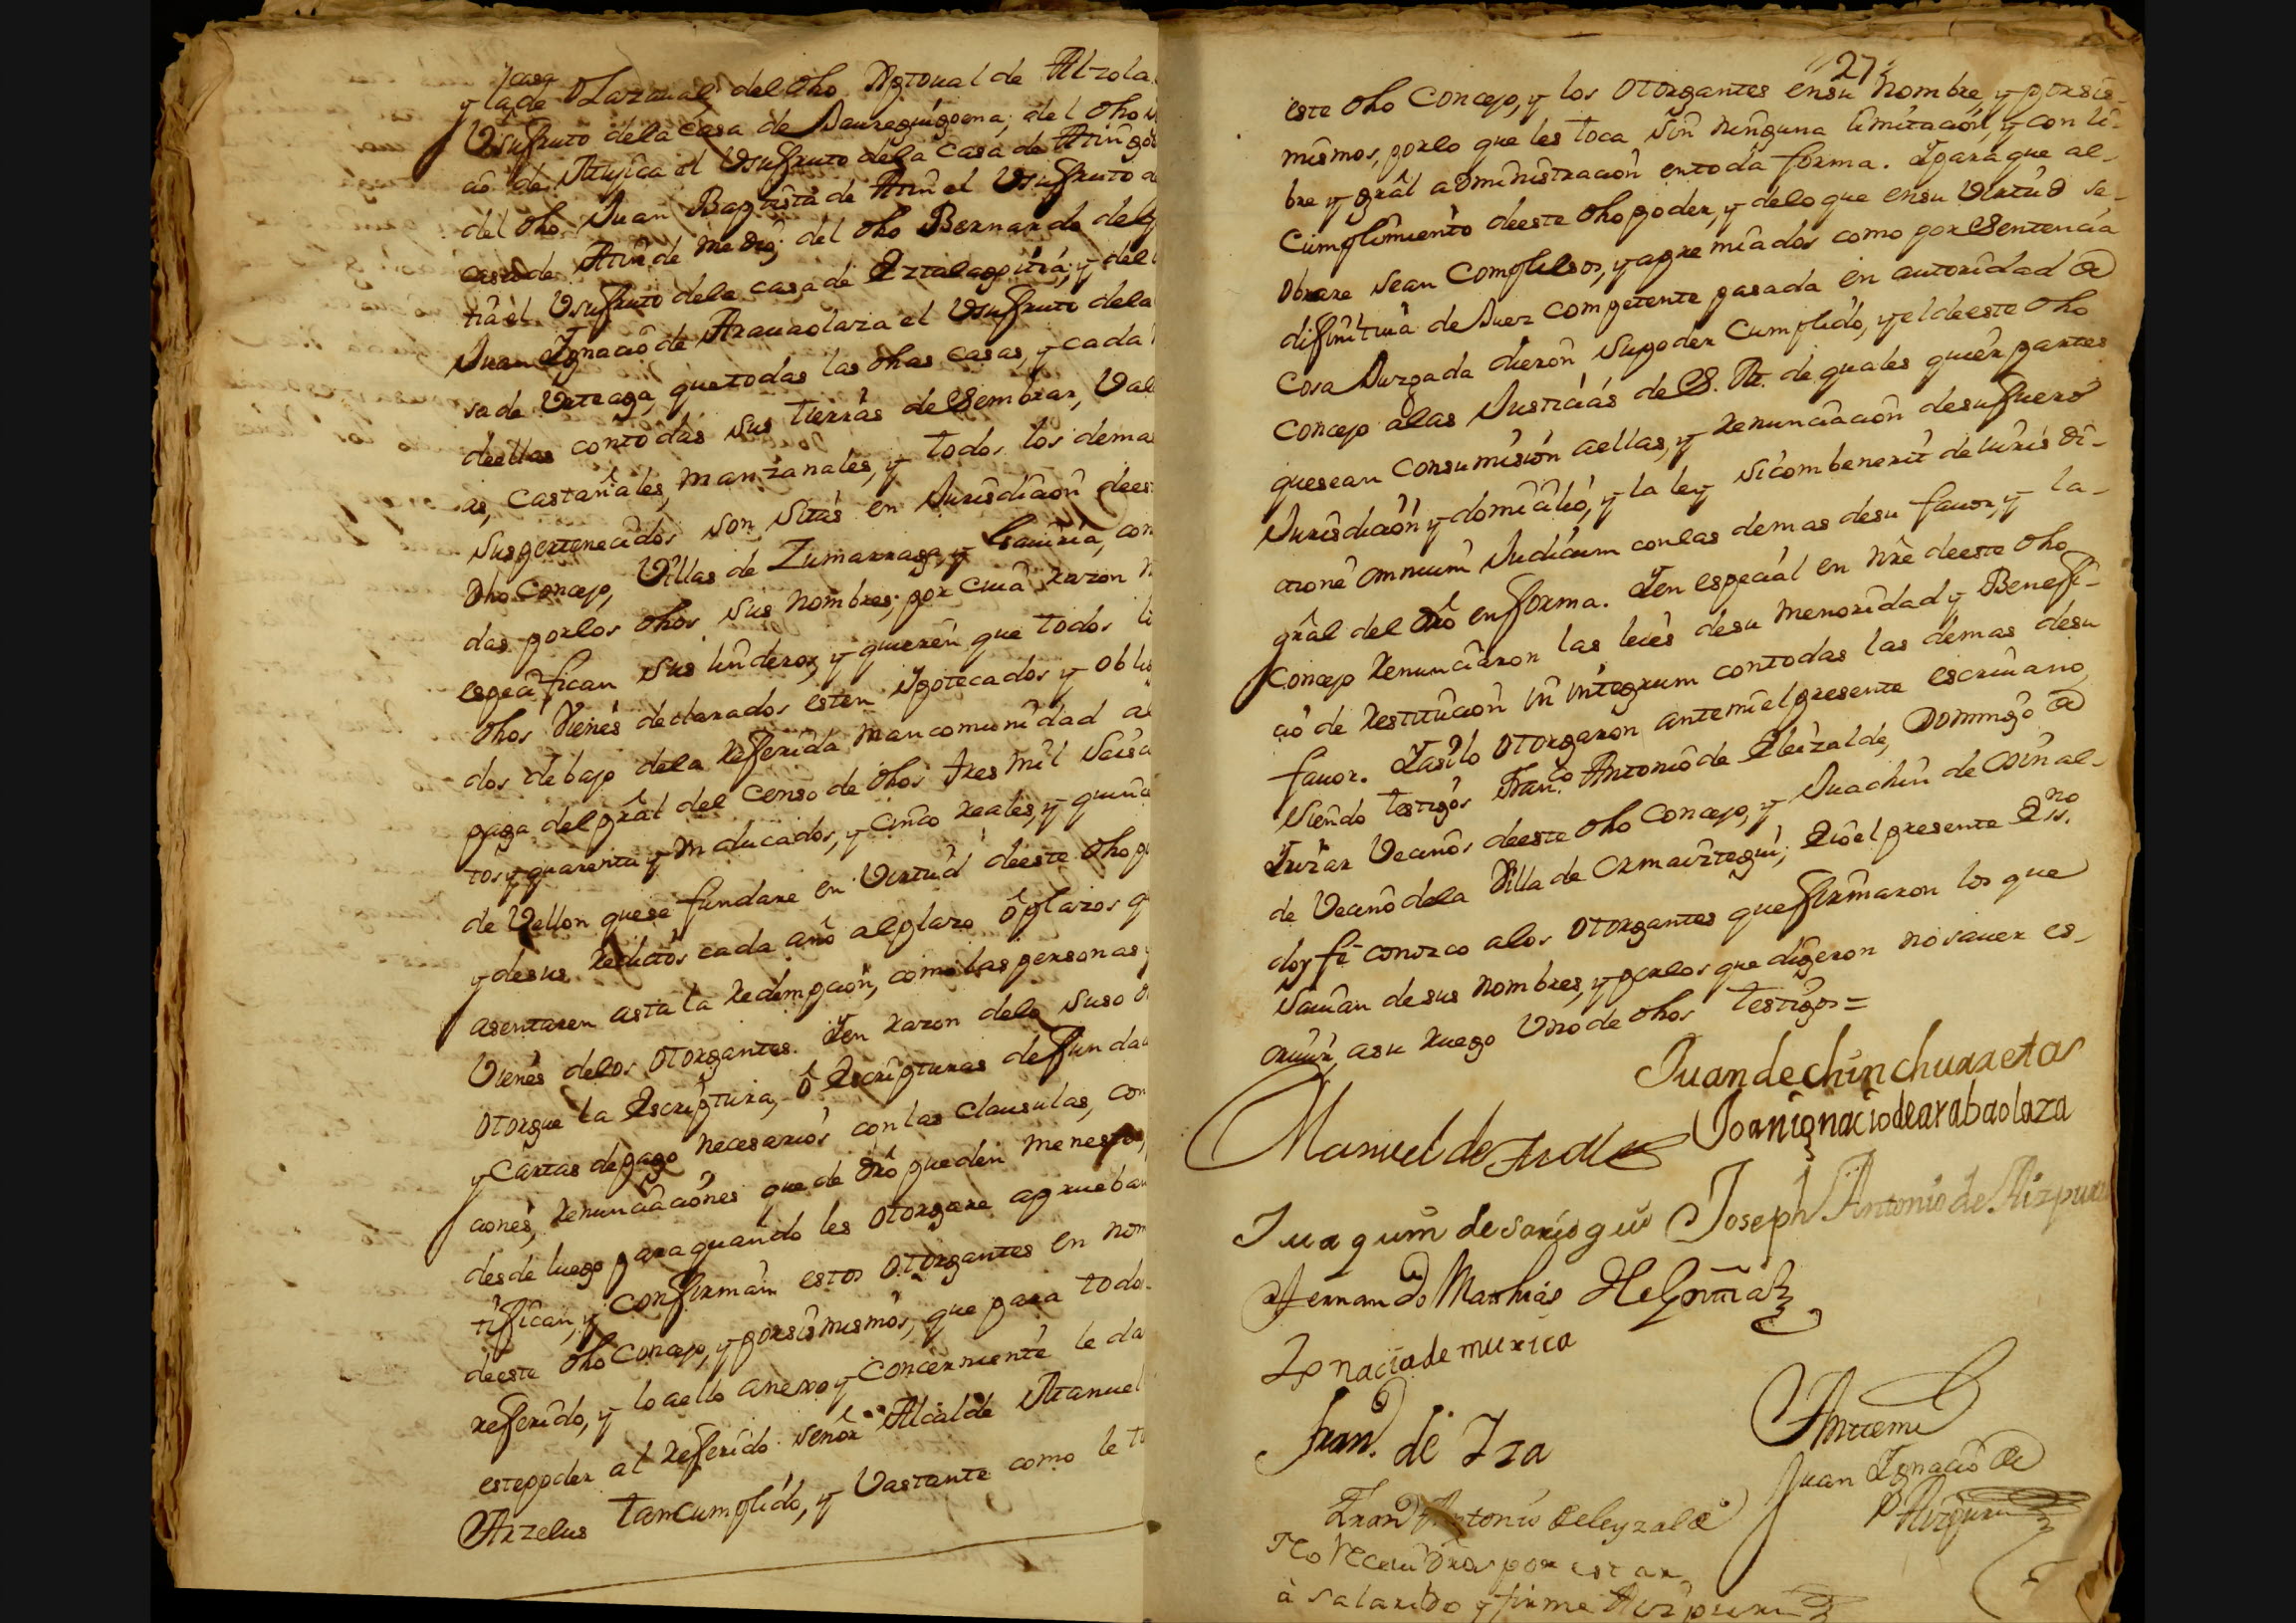 casa
y la de Olazaval del dho Xptoual de Alzola
Usufruto dela casa de Jaureguigoena; del dho
cio de Muxica el Usufruto dela casa de Atin goi
del dho Juan Baptista de Atin el Usufruto
casa de Atin de medio; del dho Bernardo de
tia el Usufruto dela casa de Eztalapiza; y del
Juan Ignacio de Aravaolaza el Usufruto dela
sa de Urteaga, que todas las dhas casas, y cada
deellas con todas sus tierras de Sembrar,
as, Castañales, Manzanales, y todos los demas
sus pertenecidos son Sitas en Jurisdicion dees
dho Concejo, Villas de Zumarraga, y Gauiria, con
das por los dhos sus nombres; por cuia razon
especifican sus linderos, y quieren que todos
dhos Vienes declarados esten Ypotecados y oblig
dos debajo dela Referida mancomunidad
paga del prâl del censo de dhos tres mil Seisc
tos y quarenta y Un ducados, y cinco Reales, y quince
de Vellon que se fundare en Virtud deeste dho
y desus Reditos cada año alplazo ô plazos q
asentaren asta la Redempcion, como las personas y
Vienes delos Otorgantes. Yen razon delo suso
Otorgue la Escriptura, ô Escripturas de fundac
y Cartas depago necesarios con las clausulas, con
ciones, Renunciaciones que de dro pueden menester,
desde luego para quando les Otorgare aprueban
tifican, y confirman estos Otorgantes en nom
deeste dho Concejo, y por sis mismos, que para todo
referido, y lo aello anexo y concerniente le da
este poder al Referido Señor Alcalde Manuel
Arzelus tan cumplido, y Vastante como le
27
este dho Concejo, y los Otorgantes en su nombre, y por sis
mismos, por lo que les toca sin ninguna limitacion, y con li-
bre y grâl administracion en toda forma. Ypara que al
Cumplimiento deeste dho poder, y delo que en su Virtud sa-
obrare sean Compulsos, y apremiados como por Sentencia
difinitiua de Juez competente pasada en autoridad de
Cosa Juzgada dieron supoder Cumplido, y el deeste dho
Concejo alas Justicias de S. M. de quales quier partes
que sean con sumision aellas, y renunciacion desu fuero
Jurisdicion y domicilio, y la ley sicombenerit de iuris di-
cione omnium Judicum con las demas desu fauor, y la-
grâl del dro en forma. Yen especial en nre deeste dho
Concejo Renunciaron las leies desu menoridad y Benefi-
cio de Restitucion in integrum con todas las demas desu
fauor. Y asilo Otorgaron ante mi el presente escriuano
siendo testigos Fran.co Antonio de Eleizalde, Domingo de
Irizar Vecinos deeste dho Concejo, y Juachin de
de Vecino dela Villa de Ormaiztegui; Eio el presente Ess.no
doy fe conozco alos Otorgantes que firmaron los que
Sauian desus nombres, y por los que digeron no sauer es-
criuir, asu ruego Uno de dhos testigos=
Juan de chinchurreta
Manuel de Joan ignacio de arabaolaza
Juaquin de sariegui Joseph Antonio de Aizpuru
Fernando Mathias
Ignacio de muxica
Fran.co de Iza
Anttemi
Juan Ignacio de
Aizpuru
Fran.co Antonio de leyzalde
No por estar
à salarido y firme Aizpuru